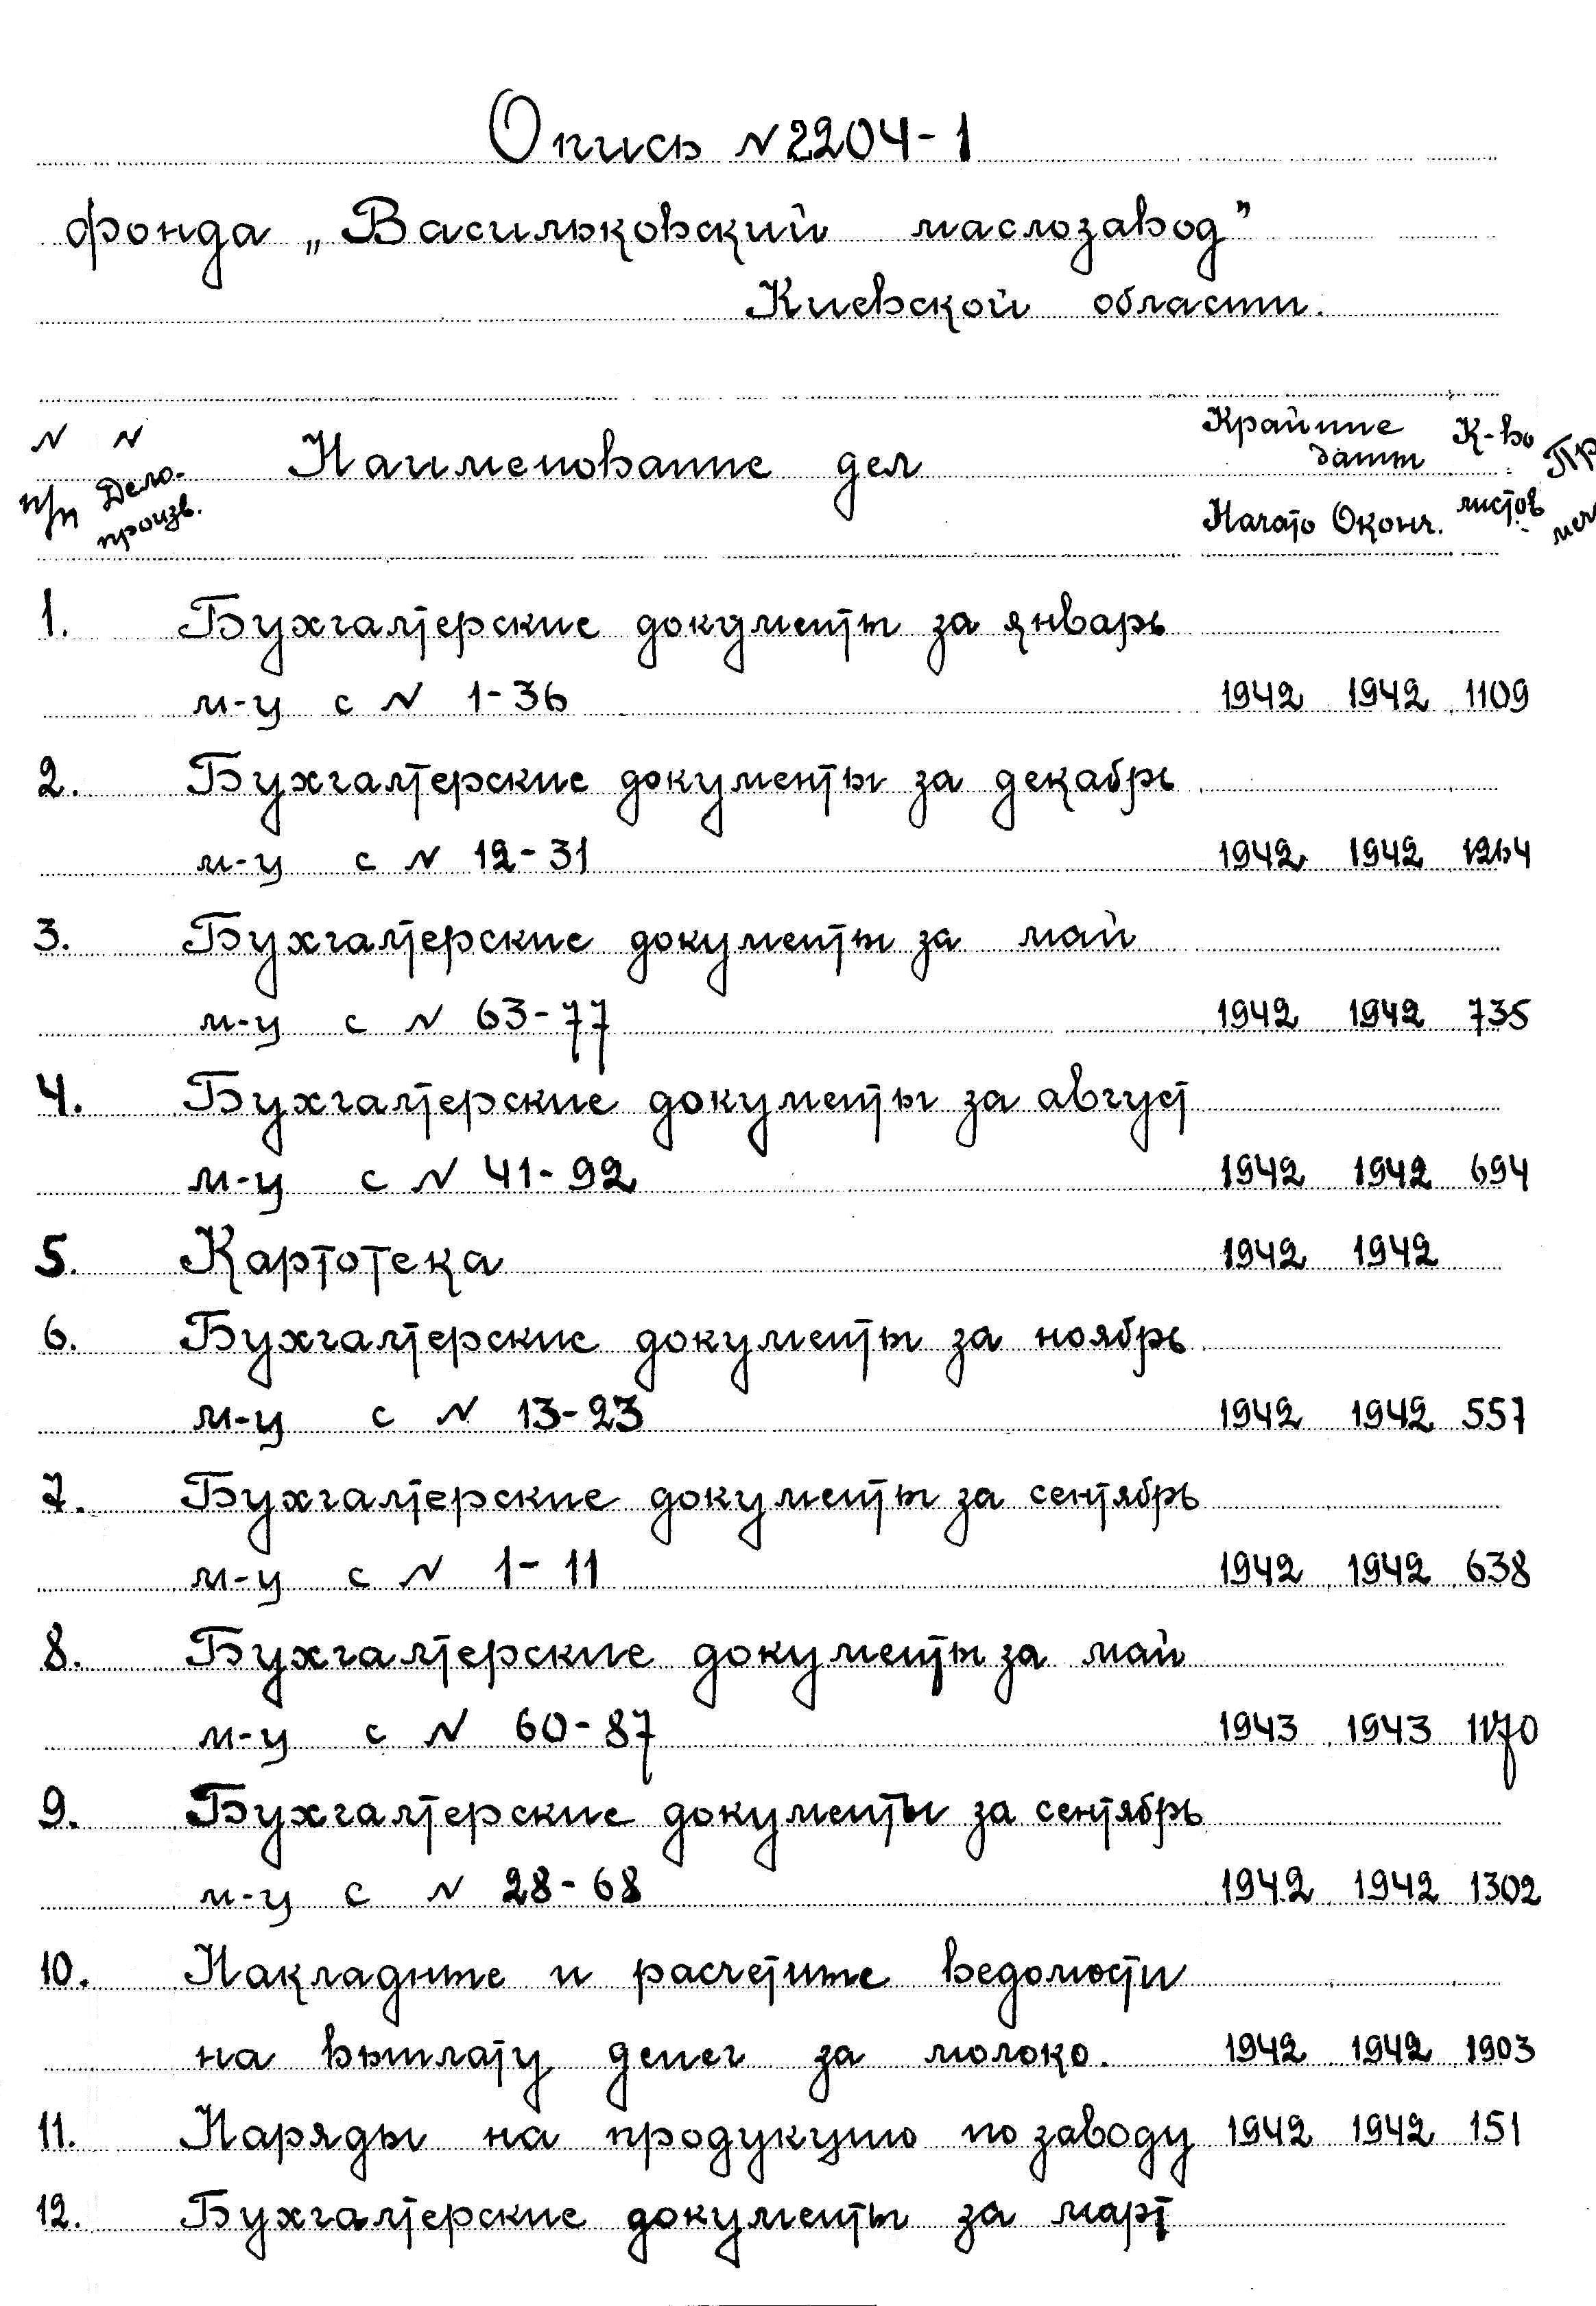 Опись N 2204-1
фонда „Васильковский маслозавод"
Киевской области.
N N Наименование дел Крайние даты К-во
п/п Дело-произв. Начато Оконч. листов
1. Бухгалтерские документы за январь
м-ц с N 1-36 1942 1942 1109
2. Бухгалтерские документы за декабрь
м-ц с N 12-31 1942 1942 1264
3. Бухгалтерские документы за май
м-ц с N 63-77 1942 1942 735
4. Бухгалтерские документы за август
м-ц с N 41-92 1942 1942 694
5. Картотека 1942 1942
6. Бухгалтерские документы за ноябрь
м-ц с N 13-23 1942 1942 557
7. Бухгалтерские документы за сентябрь
м-ц с N 1-11 1942 1942 638
8. Бухгалтерские документы за май
м-ц с N 60-87 1943 1943 1170
9. Бухгалтерские документы за сентябрь
м-ц с N 28-68 1942 1942 1302
10. Накладные и расчетные ведомости
на выплату денег за молоко. 1942 1942 1903
11. Наряды на продукцию по заводу 1942 1942 151
12. Бухгалтерские документы за март